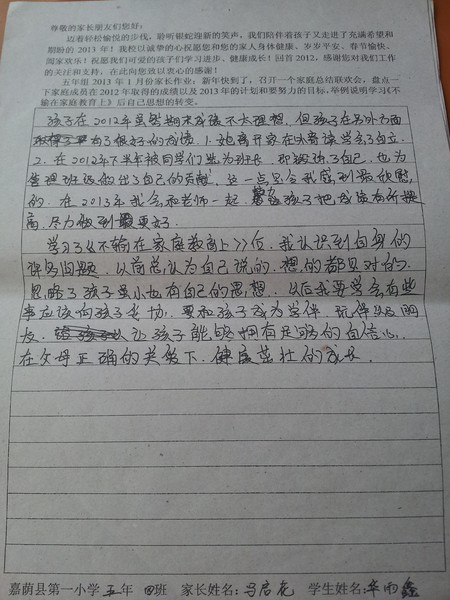 尊敬的家长朋友们您好：
迈着轻松愉悦的步伐，聆听银蛇迎新的笑声，我们陪伴着孩子又走进了充满希望和
期盼的 2013 年！我校以诚挚的心祝愿您和您的家人身体健康、岁岁平安、春节愉快、
阖家欢乐！祝愿我们可爱的孩子们学习进步、健康成长！回首 2012，感谢您对我们工作
的关注和支持，在此向您致以衷心的感谢！
五年组 2013 年 1 月份家长作业：新年快到了，召开一个家庭总结联欢会，盘点一
下家庭成员在 2012 年取得的成绩以及 2013 年的计划和要努力的目标。举例说明学习《不
输在家庭教育上》后自己思想的转变。
孩子在2012年虽然期末成绩不太理想，但孩子在另外方面
均了很好的成绩。1.她离开家在外寄读学会了自立
2.在2012年下半年被同学们选为班长，即锻炼了自己，也为
管理班级的出了自己的贡献，这一点是令我感到最欣慰
的。在2013年我会和老师一起，帮孩子把成绩有所提
高，尽力做到最更好。
学习了《不输在家庭教育上》后，我认识到自身的
许多问题，以前总认为自己说的、想的都是对的，
忽略了孩子虽小也有自己的思想，以后我要学会有些
事应该向孩子，要和孩子成为学伴、玩伴以及朋
友。让孩子能够拥有足够的自信心，
在父母正确的关爱下，健康茁壮的成长。
嘉荫县第一小学五年 四班 家长姓名：马启花 学生姓名：华雨鑫